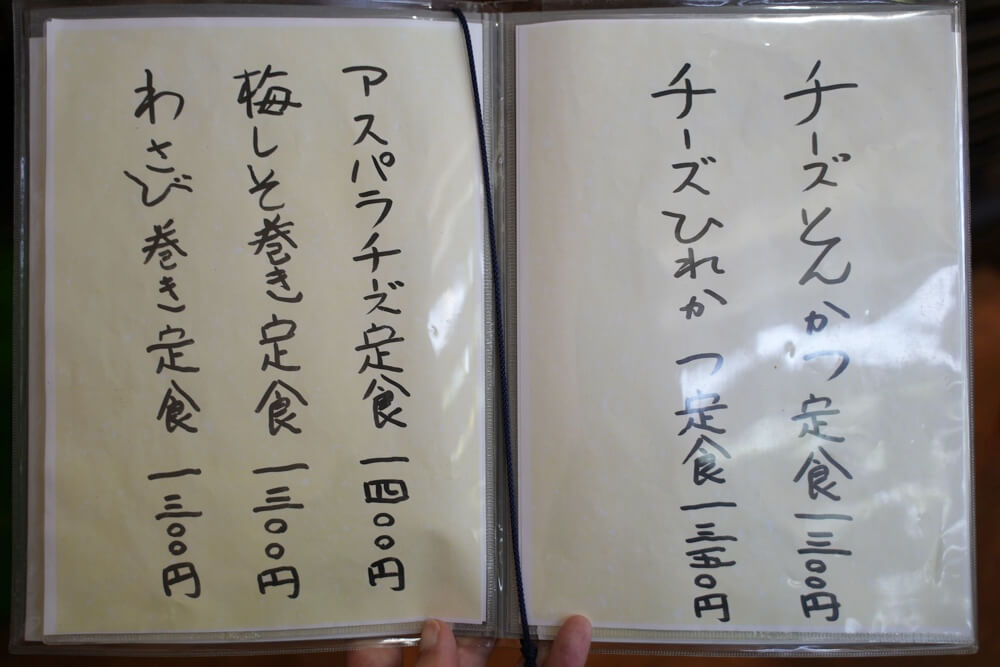 チーズとんかつ定食一三〇〇円
チーズひれかつ定食一三五〇円
アスパラチーズ定食一四〇〇円
梅しそ巻き定食一三〇〇円
わさび巻き定食一三〇〇円